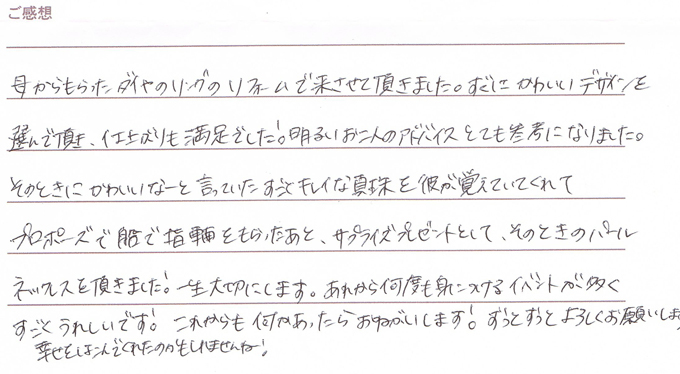 ご感想
母からもらったダイヤのリングのリフォームで来させて頂きました。すぐにかわいいデザインを
選んで頂き、仕上がりも満足でした!明るいお二人のアドバイスとても参考になりました。
そのときにかわいいなーと言っていたすごくキレイな真珠を彼が覚えていてくれて
プロポーズで船で指輪をもらったあと、サプライズプレゼントとして、そのときのパール
ネックレスを頂きました!一生大切にします。あれから何度も身につけるイベントが多く
すごくうれしいです! これからも何かあったらおねがいします! ずっとずっとよろしくお願いしま
幸せをはこんでくれたのかもしれませんね!